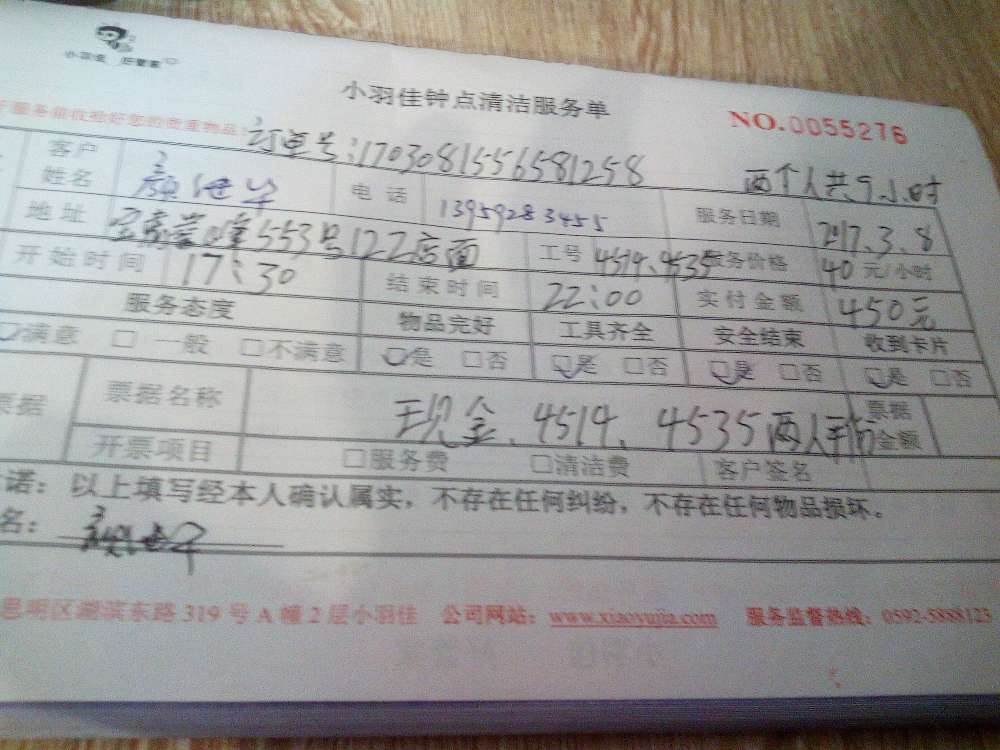 小羽佳 好管家
小羽佳钟点清洁服务单
NO.0055276
服务前收拾好您的贵重物品
订单号:1703081556581258
两个人共9小时
客户姓名 颜 电话 13959283455 服务日期 2017.3.8
地址 553号122店面 工号 4514、4535 服务价格 40元/小时
开始时间 17:30 结束时间 22:00 实付金额 450元
服务态度 物品完好 工具齐全 安全结束 收到卡片
满意 □一般 □不满意 □是 □否 □是 □否 □是 □否 □是 □否
票据 票据名称 现金、4514、4535两人平 票据金额
开票项目 □服务费 □清洁费 客户签名
诺:以上填写经本人确认属实,不存在任何纠纷,不存在任何物品损坏。
名:
思明区湖滨东路319号A幢2层小羽佳 公司网站:www.xiaoyujia.com 服务监督热线:0592-5888123